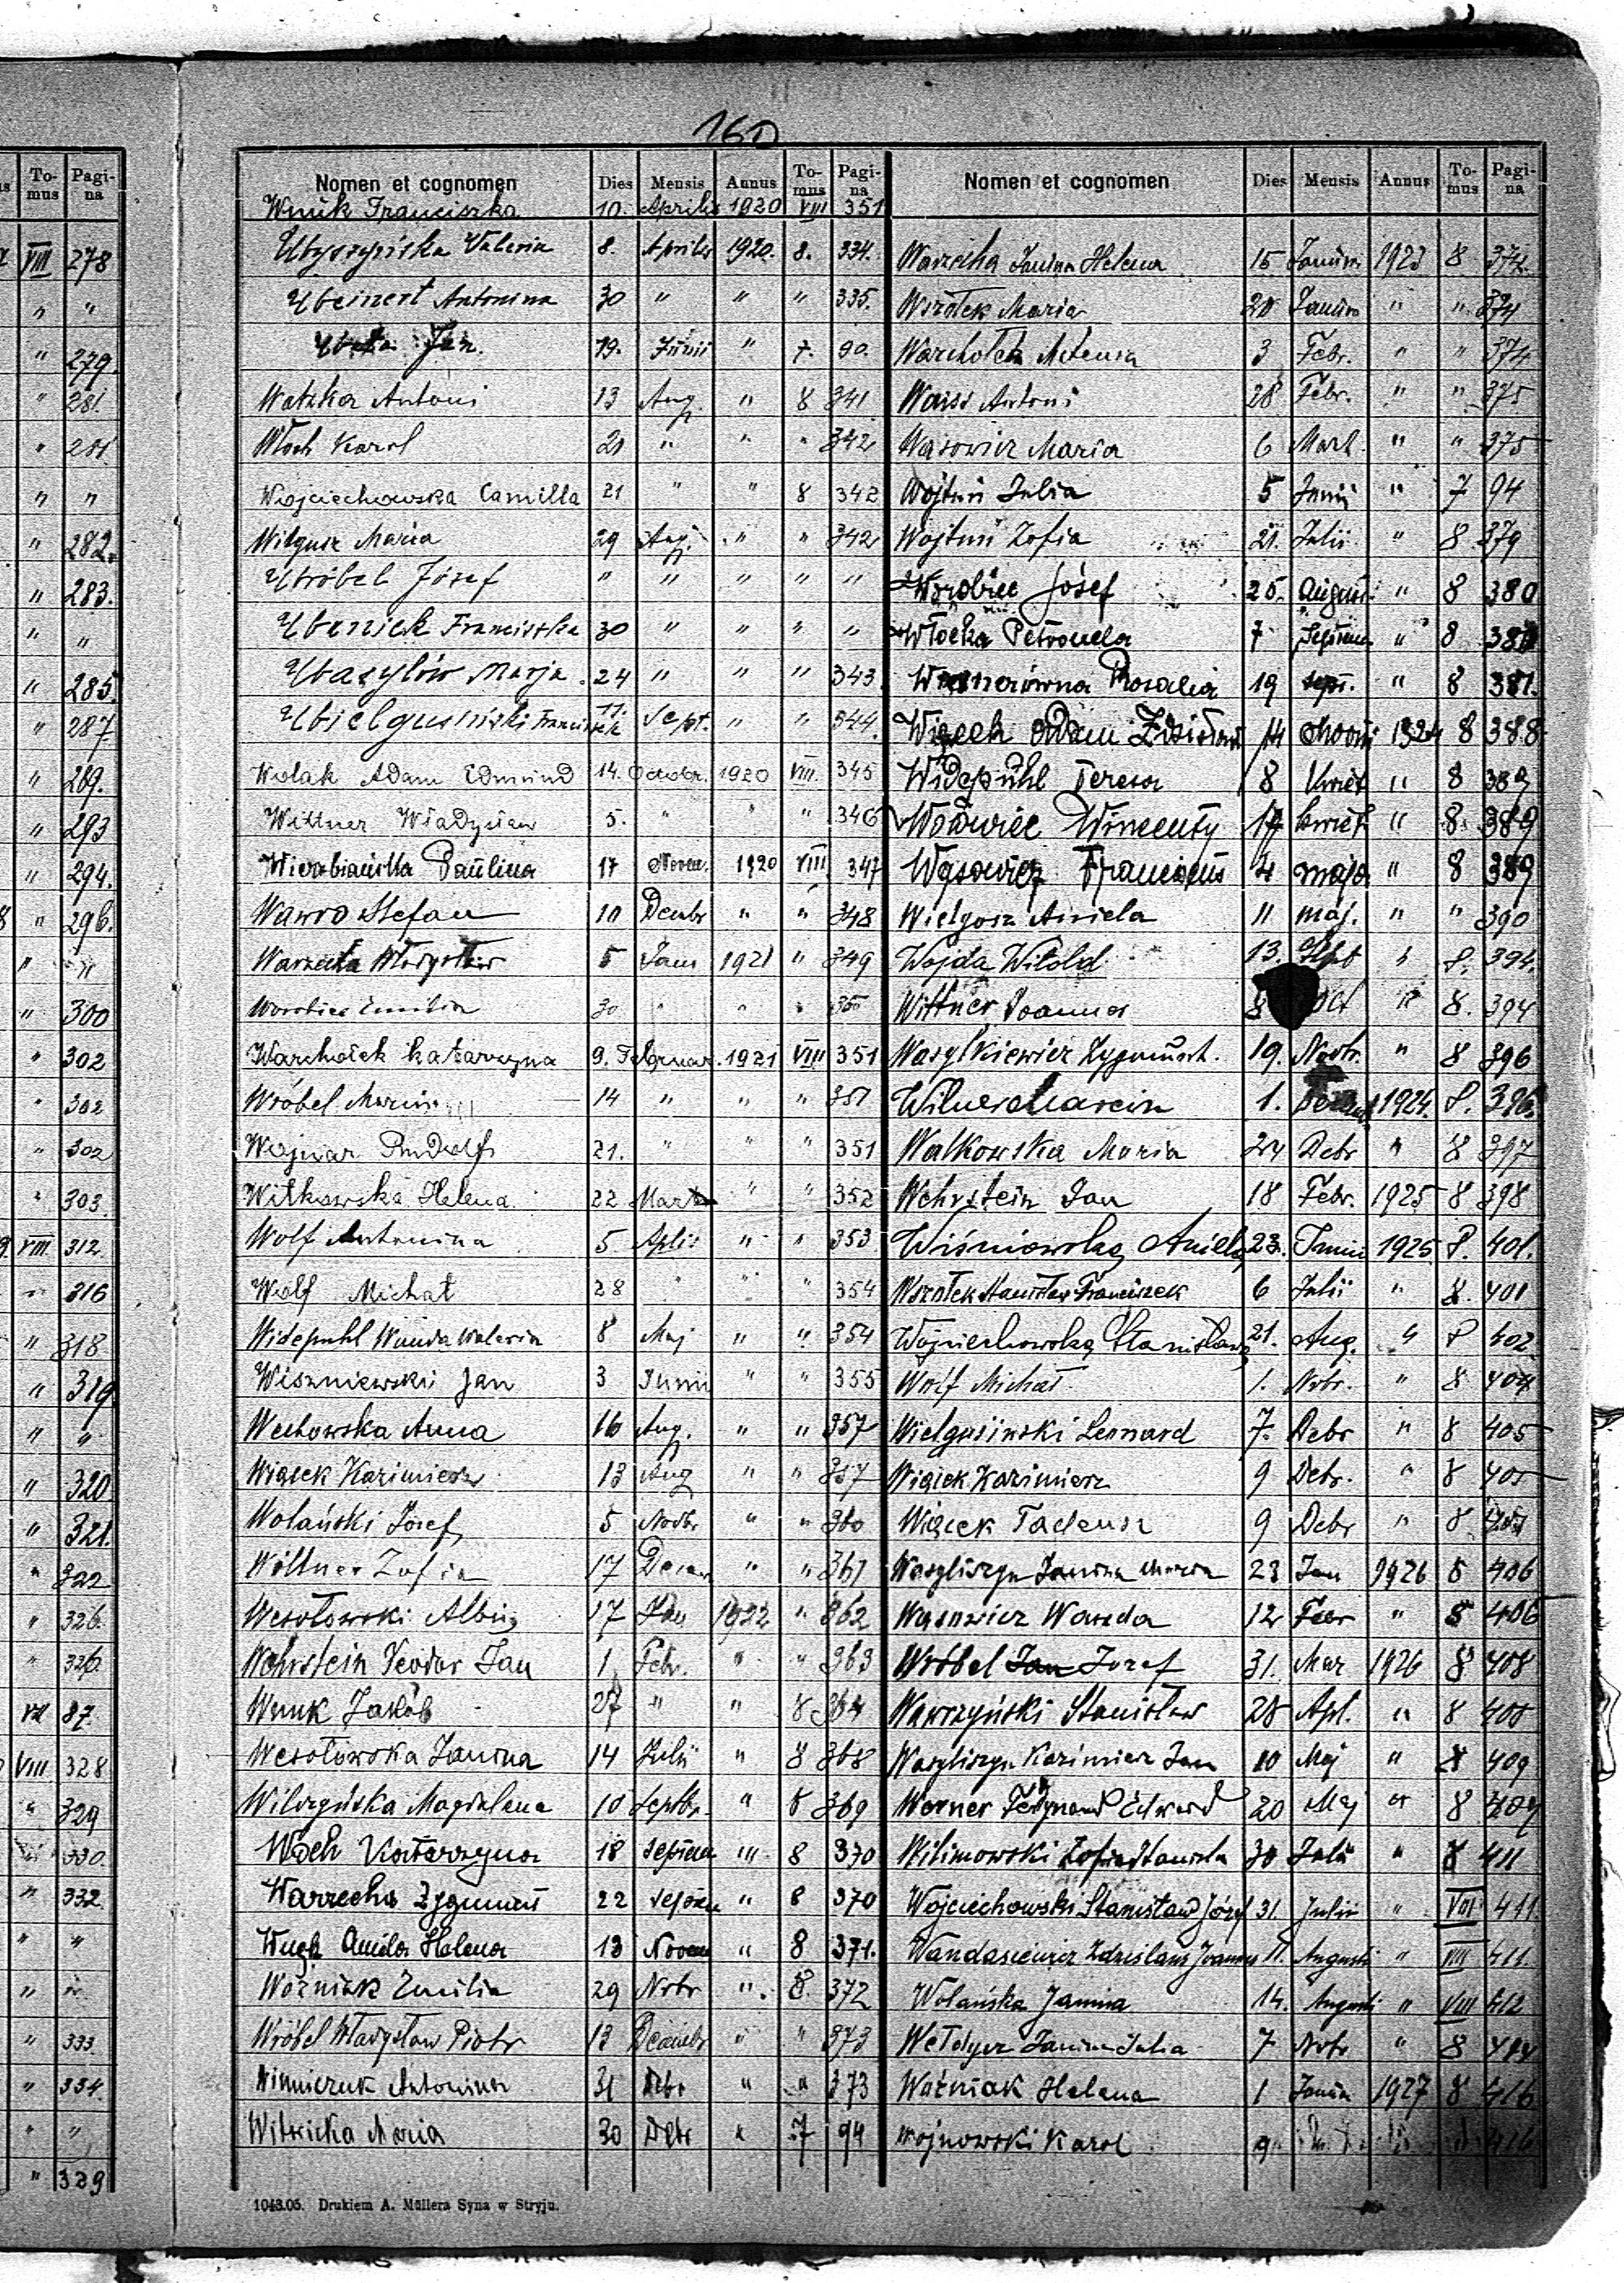 160
To- mus Pagi- na
VIII 278
" "
" 279.
" 281.
" 281
" "
" 282.
" 283.
" "
" 285.
" 287.
" 289.
" 293
" 294.
" 296.
" "
" 300
" 302
" 302
" 302
" 303.
VIII. 312
" 316
" 318
" 319.
" "
" 320
" 321.
" 322
" 326.
" 326.
VII 87.
VIII. 328
" 329
" 330.
" 332.
" "
" "
" 333.
" 334.
" "
" 329
Nomen et cognomen Dies Mensis Annus To- mus Pagi- na
Wnuk Franciszka 10. Aprilis 1920 VIII 351
Waleria 8. Aprilis 1920. 8. 334.
Weinert Antonina 30 " " " 335.
Jan. 19. Junii " 7. 90.
Watzka Antoni 13 Aug. " 8 341
Włoch Karol 21 " " " 342
Wojciechowska Camilla 21 " " 8 342
Wilgusz Maria 29 Aug. " " 342
Wróbel Józef " " " " "
Waniek Franciszka 30 " " " "
Wasylów Marja 24 " " " 343.
Wielgusiński Franciszek 11. Sept. " " 344.
Wolak Adam Edmund 14. Octobr. 1920 VIII. 345
Wittner Władysław 5. " " " 346
Wierabiańska Paulina 17 Novem. 1920 VIII. 347
Wawro Stefan 10 Decbr " " 348
Warzecha Władysław 5 Janu 1921 " 349
Emilia 30 " " " 350
Warchołek Katarzyna 9. Februar. 1921 VIII 351
Wróbel Maria 14 " " " 351
Wojnar Rudolf 21. " " " 351
Witkowska Helena 22 Mart " " 352
Wolf Antonina 5 Aplis " " 353
Wolf Michał 28 " " " 354
Widepuhl Wanda Waleria 8 Maj " " 354
Wiszniewski Jan 3 Junii " " 355
Wechowska Anna 16 Aug. " " 357
Wiącek Kazimierz 13 Aug " " 357
Wolański Józef 5 Novbr " " 360
Wittner Zofia 17 " " 361
Wesołowski Albin 17 Jan 1922 " 362
Wehrstein Teodor Jan 1 Febr. " " 363
Wnuk Jakób 27 " " 8 364
Wesołowska Janina 14 Julii " 8 368
Wilczyńska Magdalena 10 Septbr. " 8 369
Wach Katarzyna 18 Septem " 8 370
Warzecha Zygmunt 22 Septem " 8 370
Aniela Helena 13 Novem " 8 371.
Woźniak Emilia 29 Nvbr " 8. 372
Wróbel Władysław Piotr 13 Decembr " " 373
Winniczuk Antonina 31 Dcbr " " 373
Witwicka Maria 30 Dcbr " 7 94
Nomen et cognomen Dies Mensis Annus To- mus Pagi- na
Warzecha Janina Helena 15 Januar. 1923 8 374.
Wszołek Maria 20 Januar " " 374
Warchołek 3 Febr. " " 374
Antoni 28 Febr. " " 375
Wąsowicz Maria 6 Mart. " " 375
Wojtuń Julia 5 Junii " 7 94
Wojtuń Zofia 21. Julii " 8. 379
Józef 25. August. " 8 380
Włocka Petronela 7 Septem " 8
Rosalia 19 Sept. " 8 381.
Wiącek Adam Zdzisław 14 1924 8 388.
Widepühl Teresa 8 Kwiet " 8 389
Wdowiec Wincenty 17 kwiet " 8. 389
Wąsowicz Franciscus 4 maja " 8 389
Wielgosz Aniela 11 maj. " " 390
Wojda Witold 13. Spt " 8. 394.
Wittner Joanna 8 Oct " 8. 394
Wasylkiewicz Zygmunt. 19. Novbr. " 8 396
Wilner Marcin 1. 1924. 8. 396.
Walkowska Maria 24 Decbr " 8 397
Wehrstein Jan 18 Febr. 1925 8 398
Wiśniowska Aniela 23. Junii 1925 8. 401.
Wszołek Stanisław Franciszek 6 Julii " 8. 401
Wojciechowska Stanisława 21. Aug. " 8 402
Wolf Michał 1. Nvbr. " 8 404
Wielgusiński Leonard 7. Decbr " 8 405
Wiącek Kazimierz 9 Debr. " 8 405
Wiącek Tadeusz 9 Debr " 8
Wasyliszyn Janina Maria 23 Jan 1926 8 406
Wąsowicz Wanda 12 Febr " 8 406
Wróbel Jan Józef 31. Mar 1926 8 408
Wawrzyński Stanisław 28 Apl. " 8 408
Wasyliszyn Kazimierz Jan 10 Maj " 8 409
Werner Ferdynand Edward 20 Maj " 8 409
Wilimowski 30 Julii " 8 411
Wojciechowski Stanisław Józef 31 Julii " VIII 411
Wandasiewicz Zdzislaus Joannes 11. Augusti " VIII 411.
Wolańska Janina 14. Augusti " VIII 412
Wełdycz Janina Julia 7 Nvbr " 8 414
Woźniak Helena 1 Januar 1927 8 416
Wojnowski Karol 9. 416
1043.05. Drukiem A. Müllera Syna w Stryju.